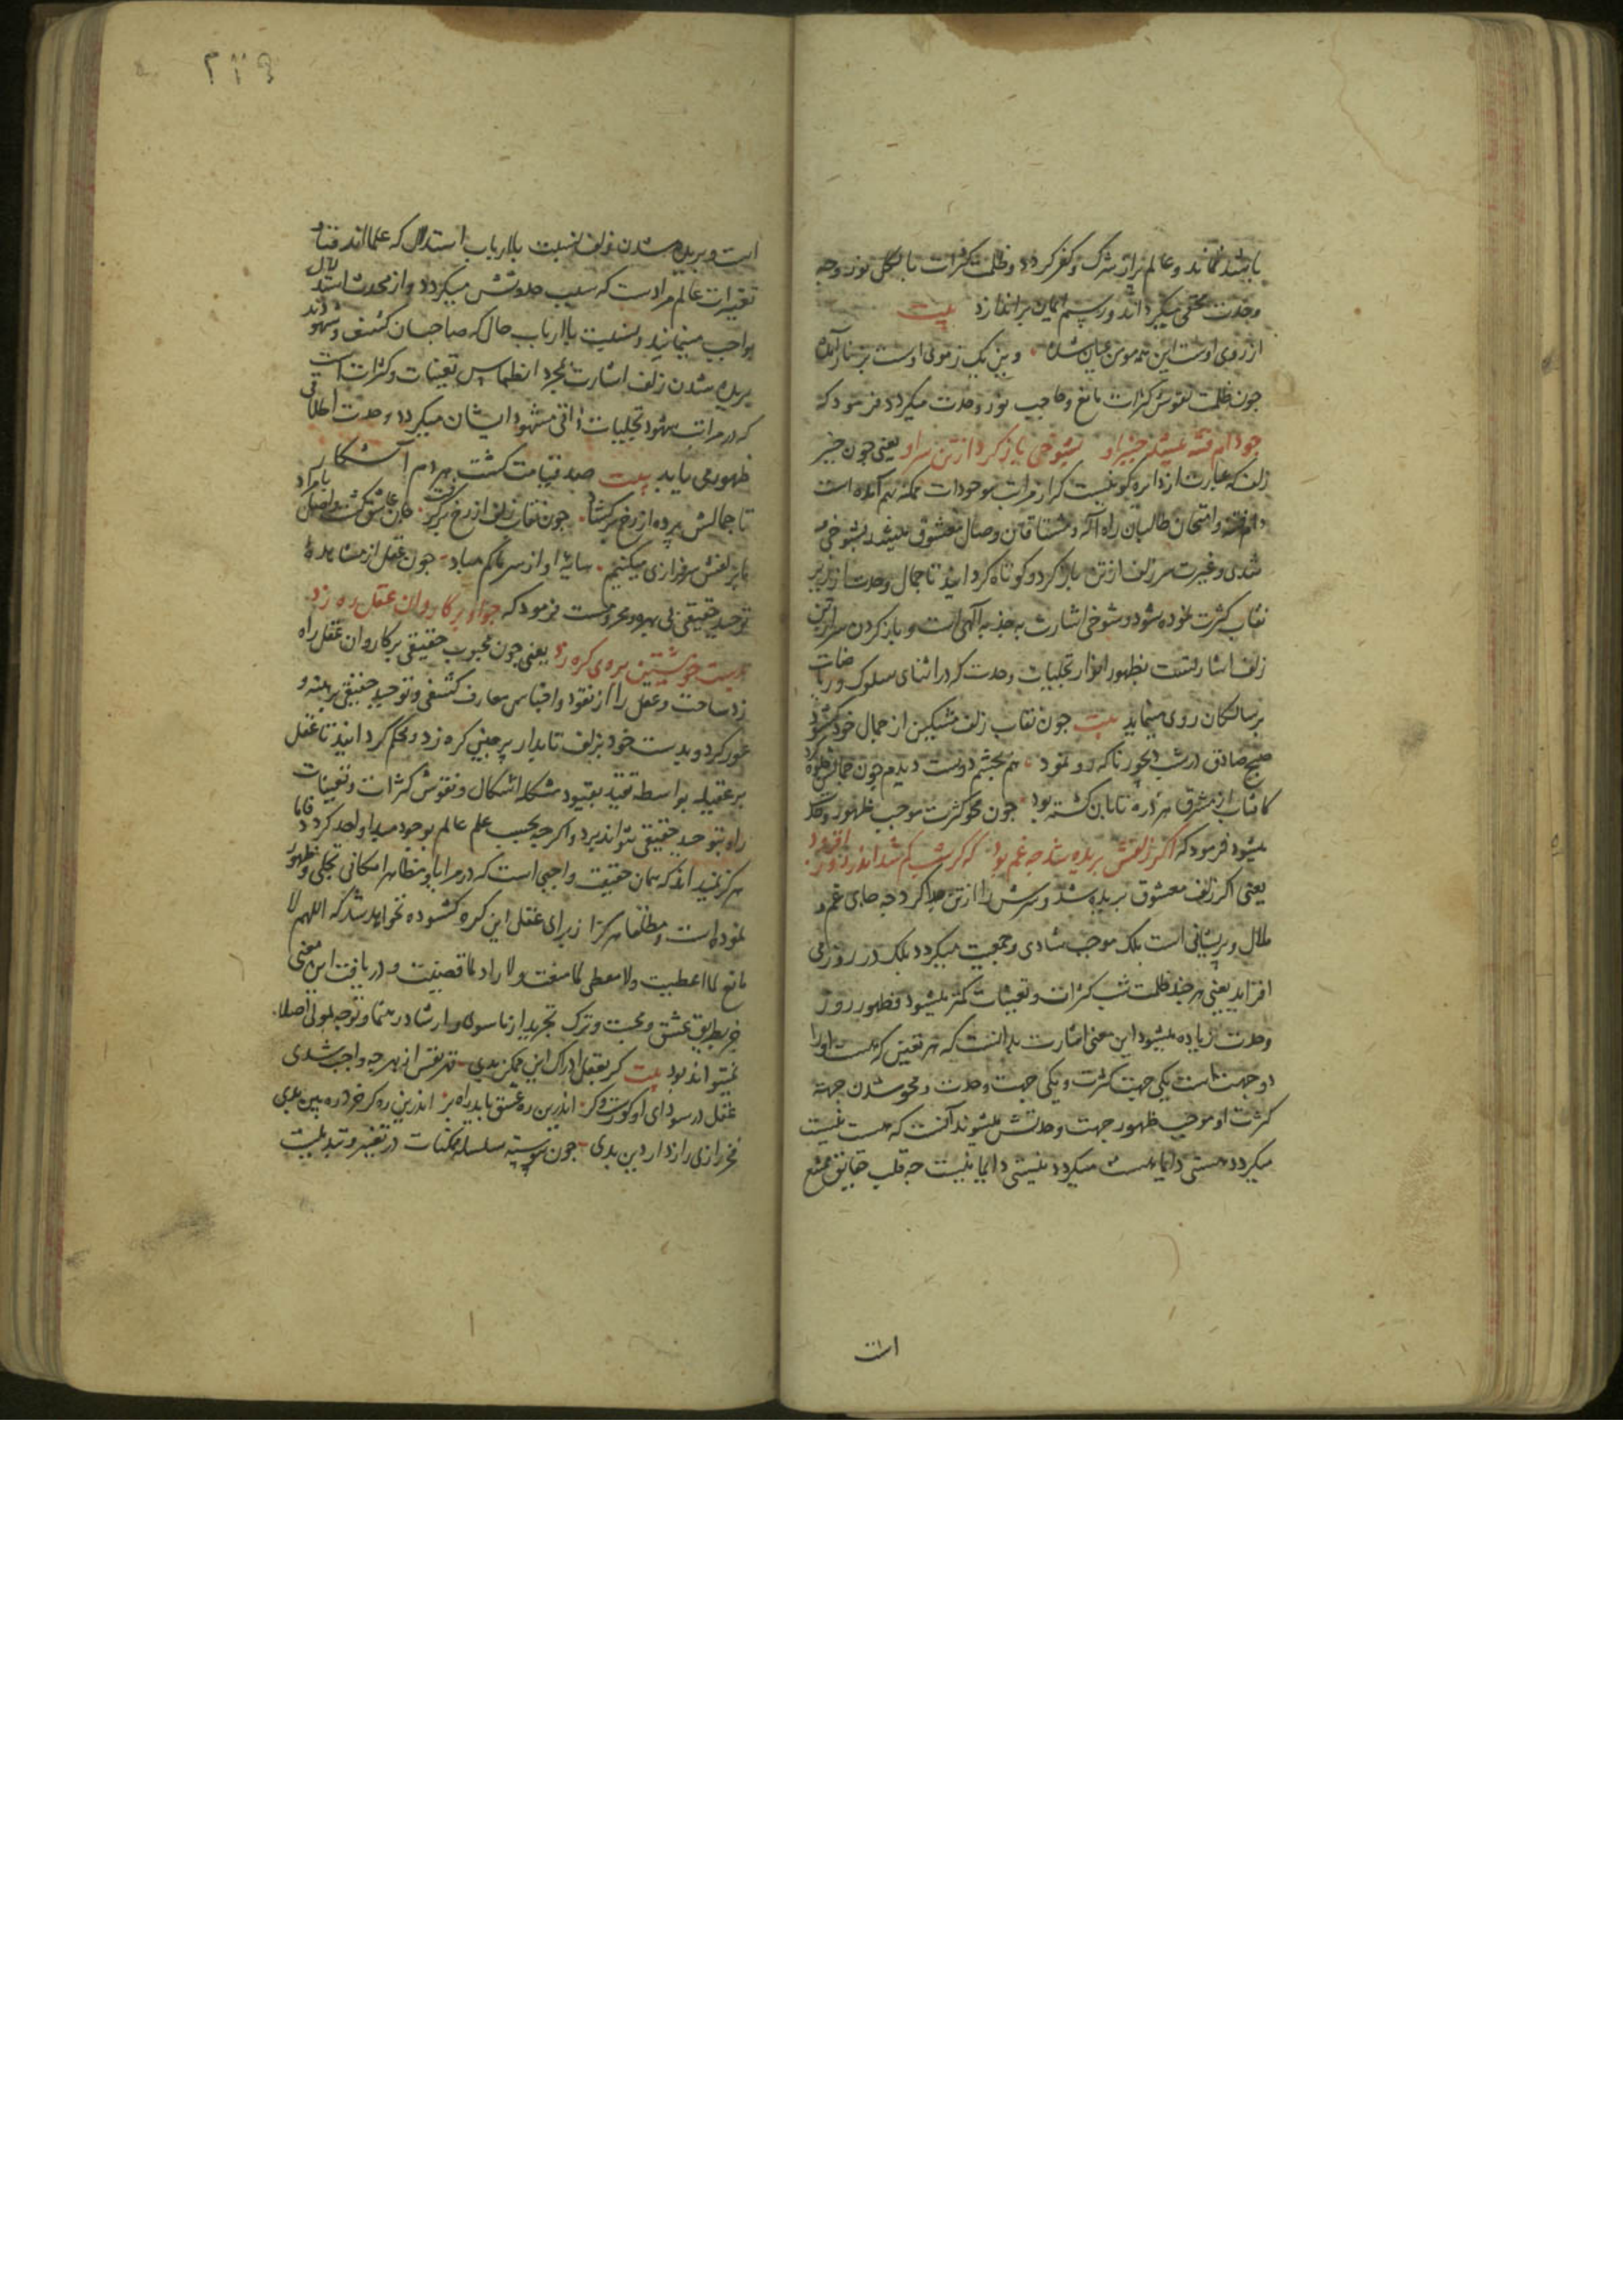 باشد نماند و عالم پر از شرک و کفر گردد و ظلمت کثرات بالکل نور وجه
وحدت مخفی میگرداند و رسم ایمان براندازد بیت
از روی اوست این همه مومن عیان شده
چون ظلمت نقوش کثرات مانع و حاجب نور وحدت میگردد فرمود که
چو دام فتنه میشد چنبر او بشوخی باز کرد از تن سر او یعنی چون چنبر
زلف که عبارت از دایره کونیست که از مراتب موجودات ممکنه بهم آمده است
دام فتنه و امتحان طالبان راه اله و مشتاقان وصال معشوق میشد بشوخی و
تندی و غیرت سر زلف از تن باز کرد و کوتاه گردانید تا جمال وحدت از زیر
نقاب کثرت نموده شود و شوخی اشارت به جذبه الهی است و باز کردن سر از تن
زلف اشارتست بظهور انوار تجلیات وحدت که در اثنای سلوک و ریاضات
بر سالکان روی مینماید بیت چون نقاب زلف مشکین از جمال خود گشود
صبح صادق در شب دیجور ناگه رو نمود هم بچشم دوست دیدم چون جمالش جلوه کرد
کافتاب از مشرق هر ذره تابان گشته بود چون محو کثرت موجب ظهور وحدت
میشود فرمود که اگر زلفش بریده شد چه غم بود که گر شب کم شد اندر روز افزود
یعنی اگر زلف معشوق بریده شد و سرش را از تن جدا کرد چه جای غم و
ملال و پریشانی است بلک موجب شادی و جمعیت میگردد بلک در روز می
افزاید یعنی هر چند ظلمت شب کثرات و تعینات کمتر میشود ظهور روز
وحدت زیاده میشود این معنی اشارت بدانست که هر تعین که هست او را
دو جهتست یکی جهت کثرت و یکی جهت وحدت و محو شدن جهت
کثرت او موجب ظهور جهت وحدتش میشود نه آنست که هست نیست
میگردد هستی دایما هست میگردد نیستی دایما نیست چه قلب حقایق ممتنع
است
۲۲۹
است و بریده شدن زلف نسبت باارباب استدلال که علمااند فنا و
تغیرات عالم مرادست که سبب حدوثش میگردد و از محدث استدلال
بواجب مینمایند و نسبت باارباب حال که صاحبان کشف و شهودند
بریده شدن زلف اشارت بمجرد انطماس تعینات و کثرات است
که در مراتب شهود تجلیات ذاتی مشهود ایشان میگردد و وحدت اطلاقی
ظهور می یابد بیت صد قیامت گشت هر دم آشکار
تا جمالش پرده از رخ برگشاد چون نقاب زلف از رخ برگرفت جان عاشق گشت واصل بامراد
ما بزلفش سرفرازی میکنیم سایه او از سر ما کم مباد چون عقل از مشاهده
توحید حقیقی بی بهره و محرومست فرمود که چو او بر کاروان عقل ره زد
بدست خویشتن بر وی گره زد یعنی چون محبوب حقیقی بر کاروان عقل راه
زد ساخت و عقل را از نقود و اجناس معارف کشفی و توحید حقیقی برهنه و
عور کرد و بدست خود بزلف تابدار پرچین گره زد و محکم گردانید تا عقل
پر عقیله بواسطه تقید بقیود مشکله اشکال و نقوش کثرات و تعینات
راه بتوحید حقیقی نتواند برد و اگر چه بحسب علم عالم بوجود مبدا واحد گردد فاما
هرگز نمیداند که همان حقیقت واجبی است که در مرایا و مظاهر امکانی تجلی و ظهور
نموده است و مطلقا هرگز از برای عقل این گره گشوده نخواهد شد که اللهم لا
مانع لما اعطیت ولا معطی لما منعت ولا راد لما قضیت و دریافت این معنی
جز بطریق عشق و محبت و ترک تجرید از ماسوی و ارشاد رهنما و توجه بمولی اصلا
نمیتواند بود بیت گر بعقل ادراک این ممکن بدی قهر نفس از بهر چه واجب شدی
عقل در سودای او کورست و کر اندرین ره عشق باید راه بر اندرین ره گر خرد ره بین بدی
فخر رازی رازدار دین بدی چون پیوسته سلسله ممکنات در تغیر و تبدیلیست